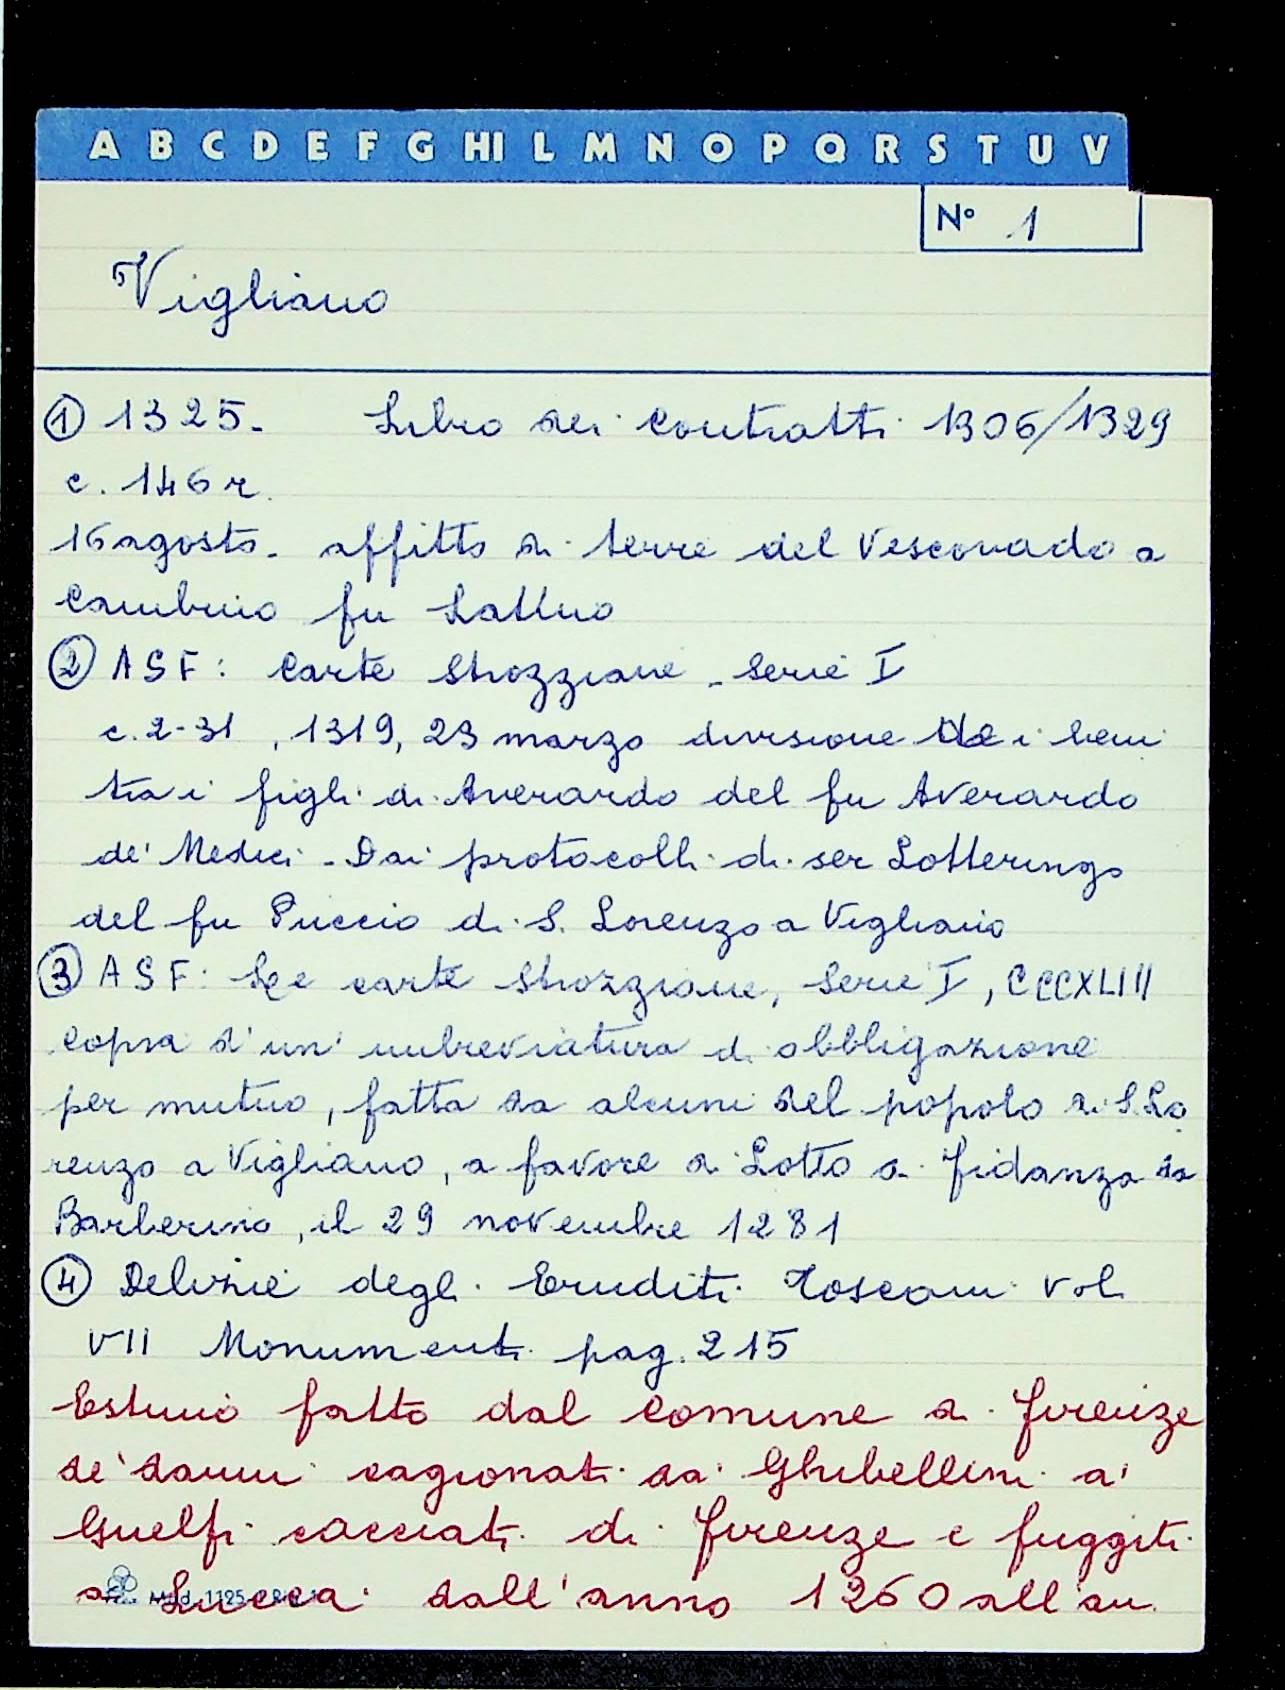 A B C D E F G HI L M N O P Q R S T U V
N° 1
Vigliano
① 1325. Libro dei contratti 1306/1329
c. 146 r.
16 agosto. affitto di terre del Vescovado a
Cambino fu Lattuo
② ASF: Carte Strozziane - Serie I
c. 2-31, 1319, 23 marzo divisione dei beni
tra i figli di Averardo del fu Averardo
de' Medici - Dai protocolli di ser Lotteringo
del fu Puccio di S. Lorenzo a Vigliano
③ ASF: Le carte Strozziane, Serie I, CCCXLIII
Copia d'un' imbreviatura di obbligazione
per mutuo, fatta da alcuni del popolo di S. Lo
renzo a Vigliano, a favore di Lotto di Fidanza da
Barberino, il 29 novembre 1281
④ Delizie degli Eruditi Toscani vol.
VII Monumenti pag. 215
Estimo fatto dal comune di Firenze
de' danni cagionati da' Ghibellini a'
Guelfi cacciati di Firenze e fuggiti
a Lucca dall'anno 1260 all'an.
Mod. 1125